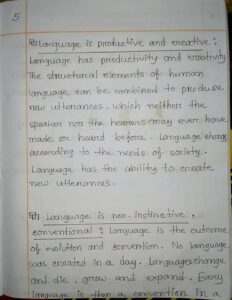 5
Language is productive and creative :
Language has productivity and creativity
The structural elements of human
language can be combined to produce
new utterances, which neither the
speaker nor the hearers may ever have
made or heard before. Language change
according to the needs of society.
Language has the ability to create
new utterances.
Language is non-instinctive,
conventional : Language is the outcome
of evolution and convention. No language
was created in a day. Languages change
and die, grow and expand. Every
language is a convention in a